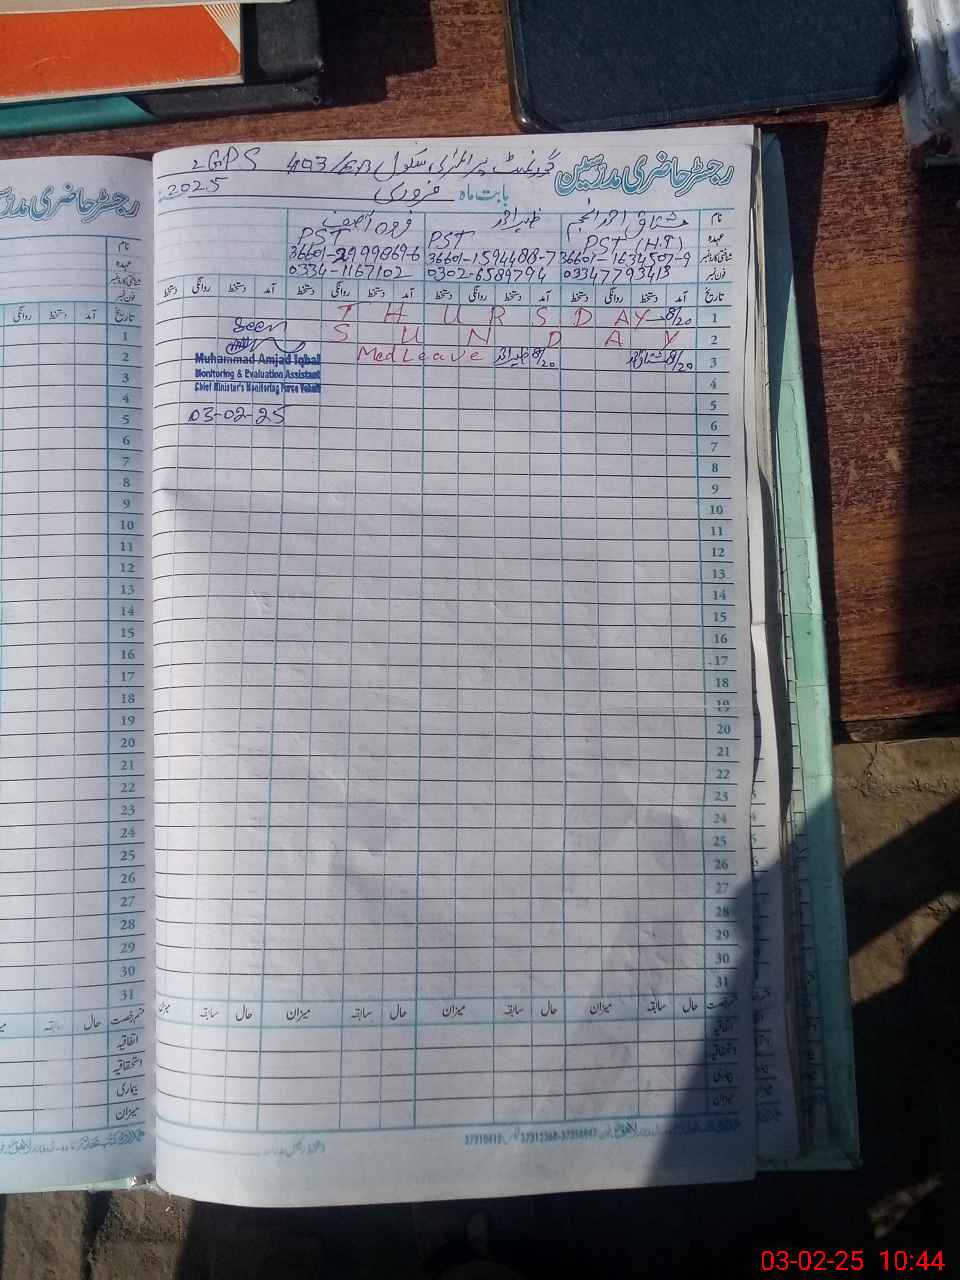 رجسٹر حاضری مدرسین گورنمنٹ پرائمری سکول 403/EB GPS
بابت ماہ فروری 2025
نام مشتاق احمد انجم ظہیر احمد
عہدہ PST (H.T) PST PST
شناختی کارڈ نمبر 36601-1634507-9 36601-1594488-7 36601-2999869-6
فون نمبر 03347793413 0302-6589794 0334-1167102
تاریخ آمد دستخط روانگی دستخط آمد دستخط روانگی دستخط آمد دستخط روانگی دستخط آمد دستخط روانگی
1 THURSDAY 8/20
2 SUNDAY
Seen
3 8/20 8/20 Med Leave
Muhammad Amjad Iqbal
Monitoring & Evaluation Assistant
Chief Minister's Monitoring Force Vehari
4
5
03-02-25
6
7
8
9
10
11
12
13
14
15
16
17
18
19
20
21
22
23
24
25
26
27
28
29
30
31
قسم رخصت حال سابقہ میزان حال سابقہ میزان حال سابقہ میزان حال سابقہ میزان
اتفاقیہ
استحقاقیہ
بیماری
میزان
رجسٹر حاضری
نام
عہدہ
شناختی کارڈ نمبر
فون نمبر
تاریخ آمد دستخط روانگی
1
2
3
4
5
6
7
8
9
10
11
12
13
14
15
16
17
18
19
20
21
22
23
24
25
26
27
28
29
30
31
قسم رخصت حال سابقہ
اتفاقیہ
استحقاقیہ
بیماری
میزان
03-02-25 10:44